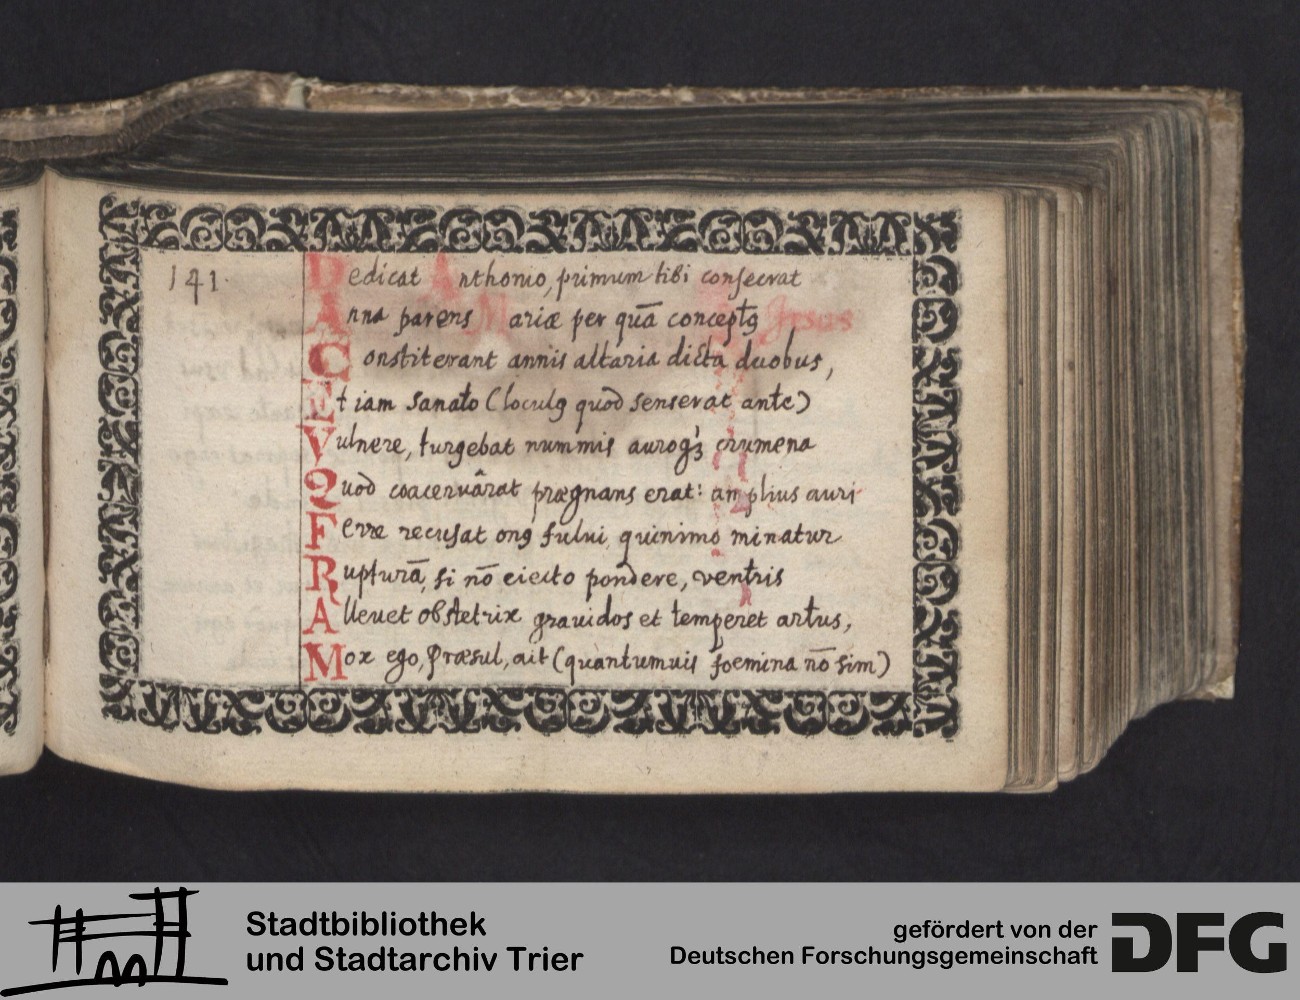 141.
Dedicat Anthonio, primum tibi consecrat Jesus
Anna parens Mariæ per quā conceptꝰ
Constiterant annis altaria dicta duobus,
Etiam Sanato (loculꝰ quod senserat ante)
Vulnere, turgebat nummis auroqꝫ crumena
Quod coacervârat prægnans erat: amplius auri
Ferre recusat onꝰ fului, quinimo minatur
Rupturā, si nō eiecto pondere, ventris
Alleuet obstetrix grauidos et temperet artus,
Mox ego, Præsul, ait (quantumuis foemina nō sim)
Stadtbibliothek
und Stadtarchiv Trier
gefördert von der
Deutschen Forschungsgemeinschaft
DFG